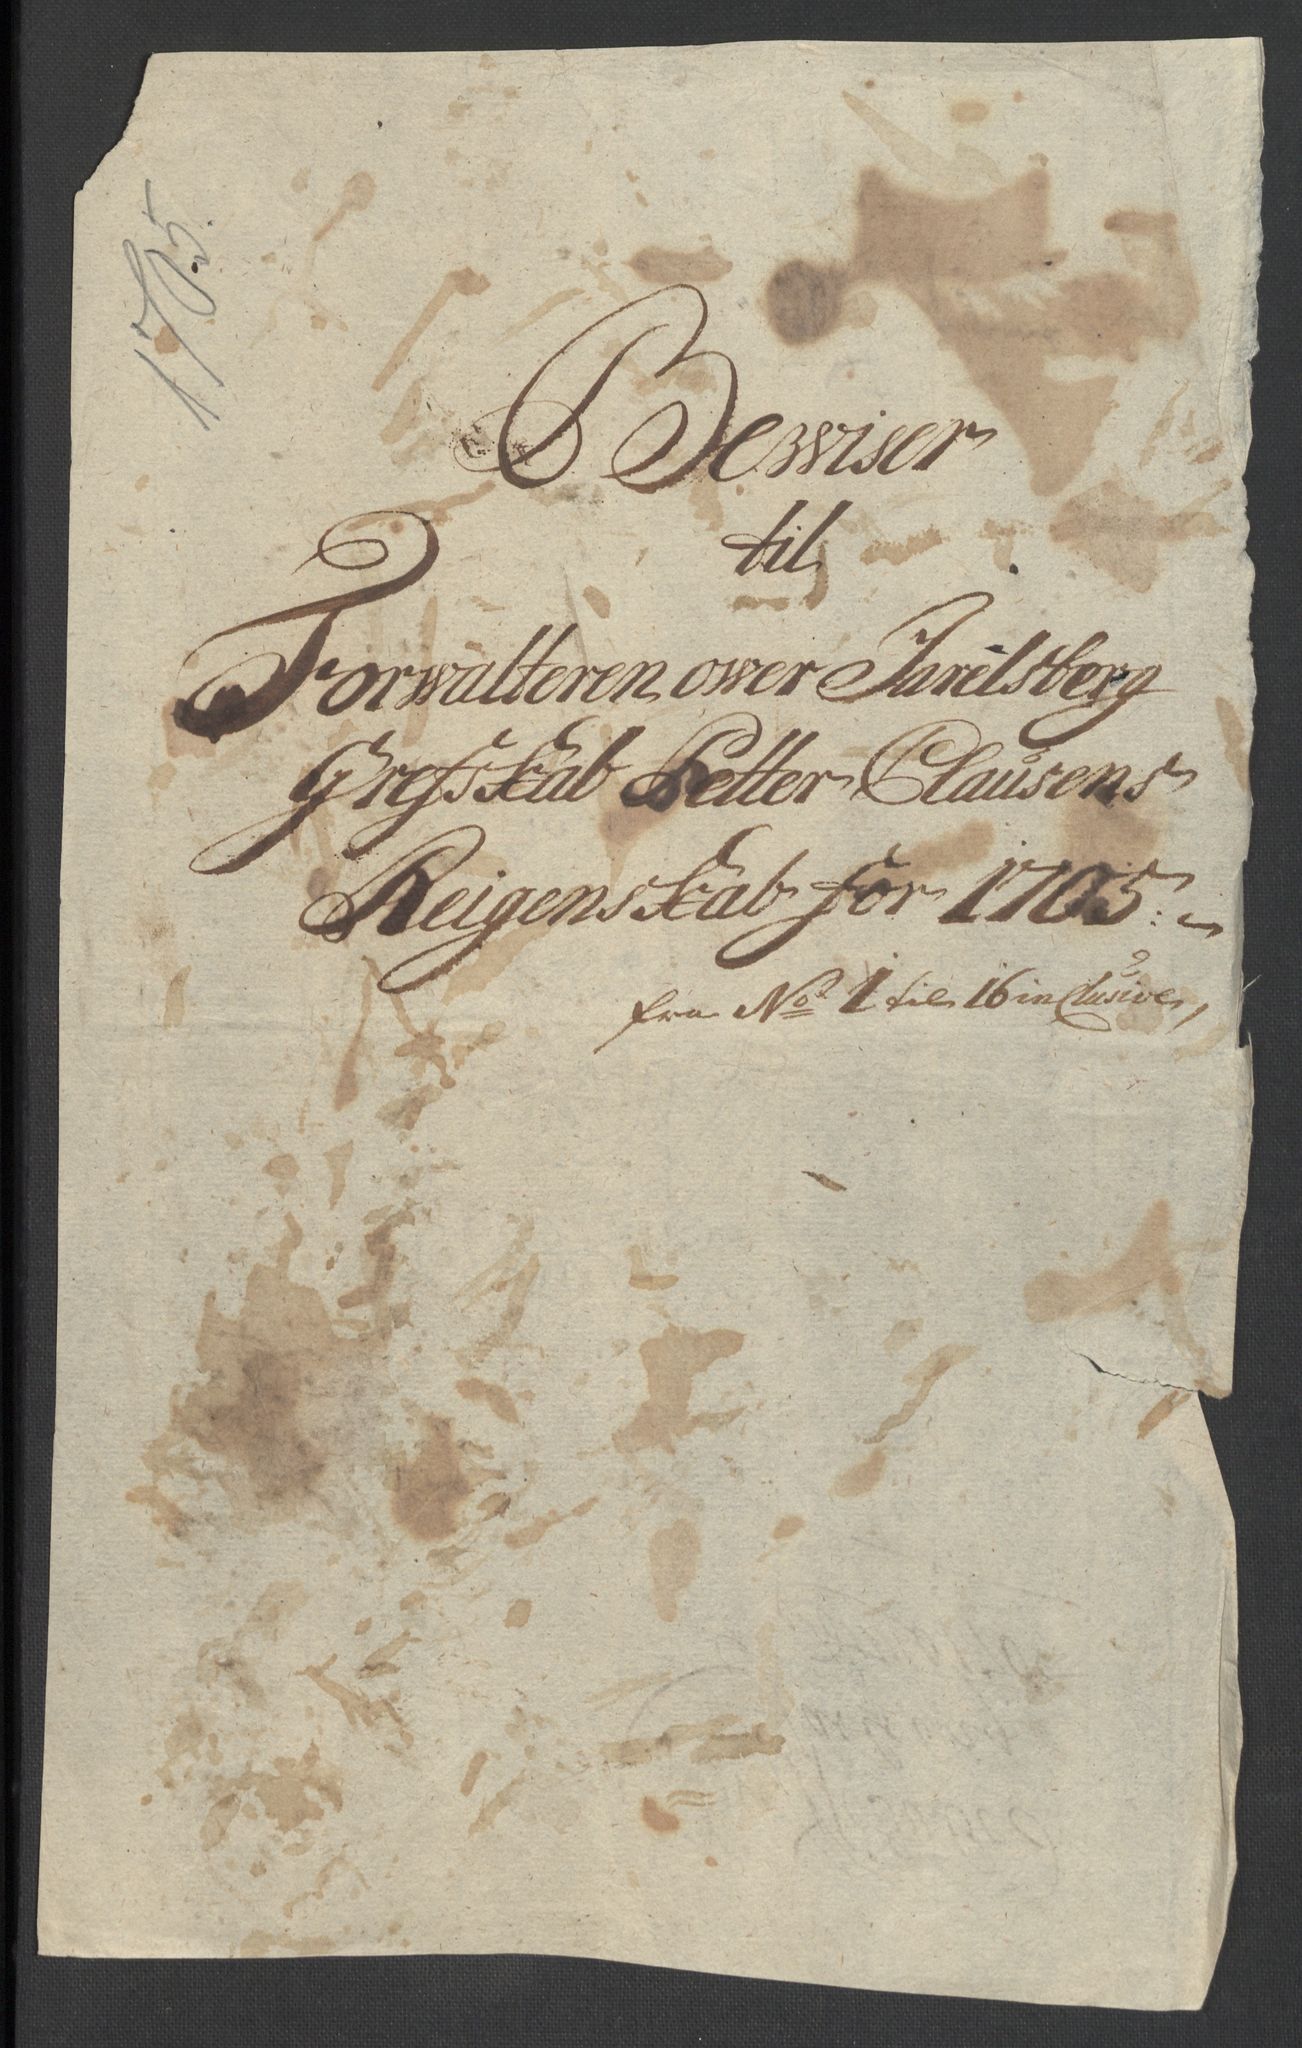 1705.
Bewiser
til
Forwalteren ower Jarelsberg
Grefsskab Petter Clausens
Reigenskab for 1705.
fra No 1 til 16 inclusive,